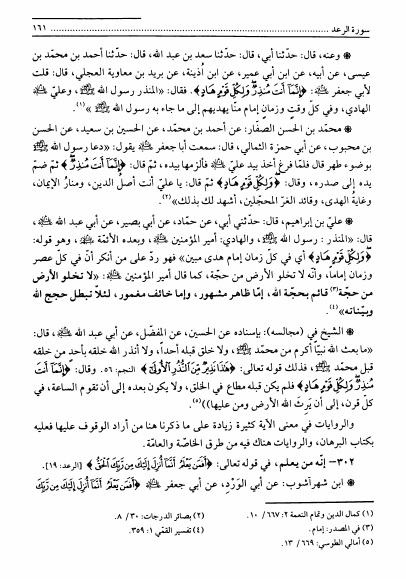 سورة الرعد ............ ١٦١
● وعنه، قال: حدّثنا أبي، قال: حدّثنا سعد بن عبد الله، قال: حدّثنا أحمد بن محمّد بن
عيسى، عن أبيه، عن ابن أبي عمير، عن ابن أُذينة، عن بريد بن معاوية العجلي، قال: قلت
لأبي جعفر: ﴿إِنَّمَا أَنتَ مُنذِرٌ وَلِكُلِّ قَوْمٍ هَادٍ﴾. فقال: «المنذر رسول الله ﷺ، وعليّ
الهادي، وفي كلّ وقتٍ وزمانٍ إمام منّا يهديهم إلى ما جاء به رسول الله ﷺ»(١).
● محمّد بن الحسن الصفّار: عن أحمد بن محمّد، عن الحسين بن سعيد، عن الحسن
بن محبوب، عن أبي حمزة الثمالي، قال: سمعت أبا جعفر يقول: «دعا رسول الله ﷺ
بوضوء طهر قال فلمّا فرغ أخذ بيد عليّ فألزمها بيده، ثمّ قال: ﴿إِنَّمَا أَنتَ مُنذِرٌ﴾ ثمّ ضمّ
يده إلى صدره، وقال: ﴿وَلِكُلِّ قَوْمٍ هَادٍ﴾ ثمّ قال: يا عليّ أنت أصلُ الدين، ومنارُ الإيمان،
وغايةُ الهدى، وقائد الغرّ المحجّلين، أشهد لك بذلك»(٢).
● عليّ بن إبراهيم، قال: حدّثني أبي، عن حمّاد، عن أبي بصير، عن أبي عبد الله،
قال: «المنذر: رسول الله ﷺ، والهادي: أمير المؤمنين، وبعده الأئمّة، وهو قوله:
﴿وَلِكُلِّ قَوْمٍ هَادٍ﴾ أي في كلّ زمان إمام هدى مبين» فهو ردّ على من أنكر أنّ في كلّ عصر
وزمان إماماً، وأنّه لا تخلو الأرض من حجّة، كما قال أمير المؤمنين: «لا تخلو الأرض
من حجّة(٣) قائم بحجّة الله، إمّا ظاهر مشهور، وإما خائف مغمور، لئلاّ تبطل حجج الله
وبيّناته»(٤).
● الشيخ في (مجالسه): بإسناده عن الحسين، عن المفضّل، عن أبي عبد الله، قال:
«ما بعث الله نبيّاً أكرم من محمّد ﷺ، ولا خلق قبله أحداً، ولا أنذر الله خلقه بأحد من خلقه
قبل محمّد ﷺ، فذلك قوله تعالى: ﴿هَذَا نَذِيرٌ مِّنَ النُّذُرِ الْأُولَى﴾ النجم: ٥٦. وقال: ﴿إِنَّمَا أَنتَ
مُنذِرٌ وَلِكُلِّ قَوْمٍ هَادٍ﴾ فلم يكن قبله مطاع في الخلق، ولا يكون بعده إلى أن تقوم الساعة، في
كلّ قرن، إلى أن يَرِثَ الله الأرض ومن عليها)»(٥).
والروايات في معنى الآية كثيرة زيادة على ما ذكرنا هنا من أراد الوقوف عليها فعليه
بكتاب البرهان، والروايات هناك فيه من طرق الخاصّة والعامّة.
٣٠٢- إنّه من يعلم، في قوله تعالى: ﴿أَفَمَن يَعْلَمُ أَنَّمَا أُنزِلَ إِلَيْكَ مِن رَبِّكَ الْحَقُّ﴾ [الرعد: ١٩].
● ابن شهرآشوب: عن أبي الوَرْد، عن أبي جعفر ﴿أَفَمَن يَعْلَمُ أَنَّمَا أُنزِلَ إِلَيْكَ مِن رَبِّكَ
(١) كمال الدين وتمام النعمة ٢: ٦٦٧ / ١٠.
(٢) بصائر الدرجات: ٣٠ / ٨.
(٣) في المصدر: إمام.
(٤) تفسير القمّي ١: ٣٥٩.
(٥) أمالي الطوسي: ٦٦٩ / ١٣.